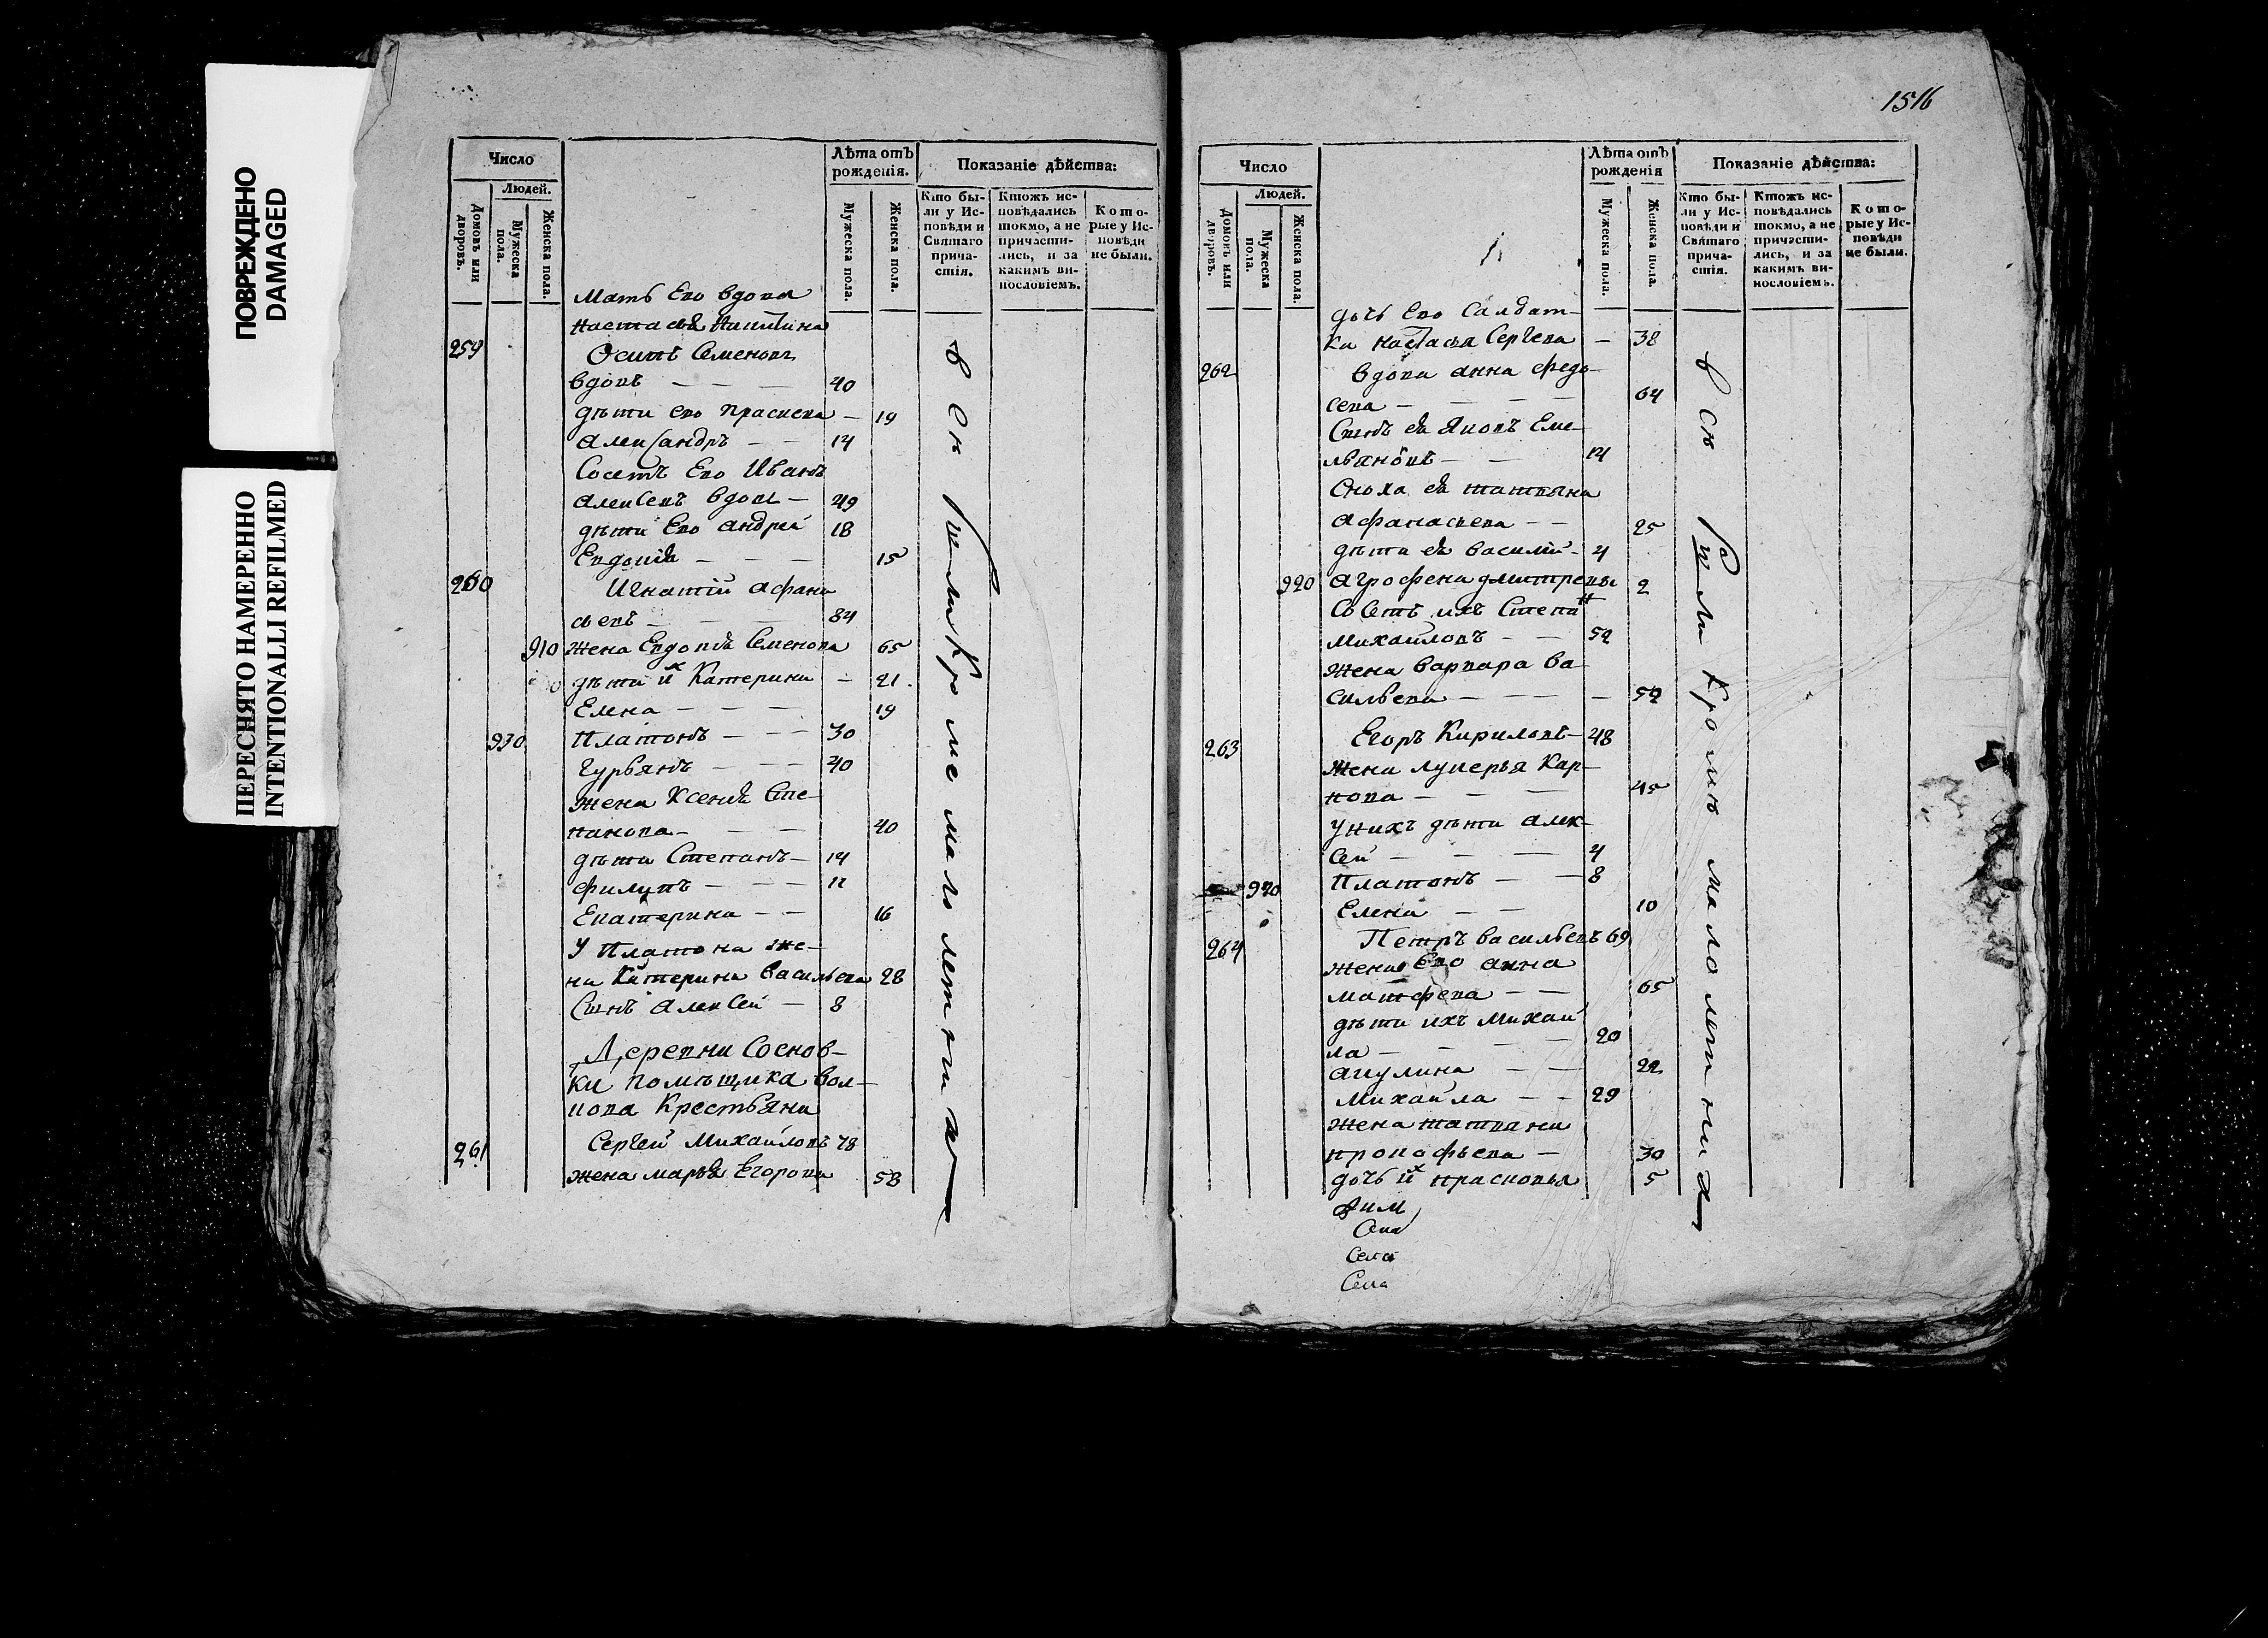 ПОВРЕЖДЕНО
DAMAGED
ПЕРЕСНЯТО НАМЕРЕННО
INTENTIONALLI REFILMED
Число
Людей.
Домовъ или дворовъ.
Мужеска пола.
Женска пола.
Лѣта отъ рожденія.
Мужеска пола.
Женска пола.
Показаніе дѣйства:
Кто бы-
ли у Ис-
повѣди и
Святаго
прича-
стія.
Ктожъ ис-
повѣдались
токмо, а не
причасти-
лись, и за
какимъ ви-
нословіемъ.
Кото-
рые у Ис-
повѣди
не были.
Мать Его вдова
Настасья Никитина
259 Осипъ Семеновъ
вдовъ — — — 40
дѣти его Прасковa — 19
Александръ — — 14
Сосетъ Его Иванъ
Алексевъ вдовъ — 49
дѣти Его Андрей 18
Евдокія — — — 15
260 Игнатій Афана
сьевъ — — — 84
910 Жена Евдокія Семенова 65
дѣти их Катерина — 21
Елена — — — 19
930 Платонъ — — — 30
Гурьянъ — — — 40
Жена Ксенія Сте-
панова — — — 40
дѣти Степанъ — 14
Филипъ — — — 11
Екатерина — — 16
У Платона же-
на Катерина Васильева 28
Сынъ Алексей — 8
Деревни Соснов-
ки помѣщика Вол-
кова Крестьяни
261 Сергей Михайловъ 78
Жена Марья Егорова 58
всѣ были Кроме малолетних
1516
Число
Людей.
Домовъ или дворовъ.
Мужеска пола.
Женска пола.
Лѣта отъ рожденія
Мужеска пола.
Женска пола.
Показаніе дѣйства:
Кто бы-
ли у Ис-
повѣди и
Святаго
прича-
стія.
Ктожъ ис-
повѣдались
токмо, а не
причасти-
лись, и за
какимъ ви-
нословіемъ.
Кото-
рые у Ис-
повѣди
не были.
дочь Его Салдат-
ка Настасья Сергева — 38
262 Вдова Анна Федо-
сева — — — — 64
Сынъ ея Яковъ Еме-
льяновъ — — 14
Сноха ея Татьяна
Афанасьева — — 25
дѣти ея Василий — 4
920 Агрофена Дмитревы 2
Сосетъ ихъ Степан
Михайловъ — — 52
Жена Варвара Ва-
сильева — — — — 52
263 Егоръ Кириловъ — 48
Жена Лукерья Кар-
пова — — — 45
У них дѣти Алек-
сей — — — 4
940 Платонъ — — 8
Елена — — 10
264 Петръ Васильевъ 69
Жена Его Анна
Матфева — — 65
дѣти ихъ Михай
ла — — — — 20
Акулина — — 22
Михайла — — 29
Жена Татьяна
Прокофьева — 30
дочь их Прасковья 5
всѣ были Кромѣ малолетних